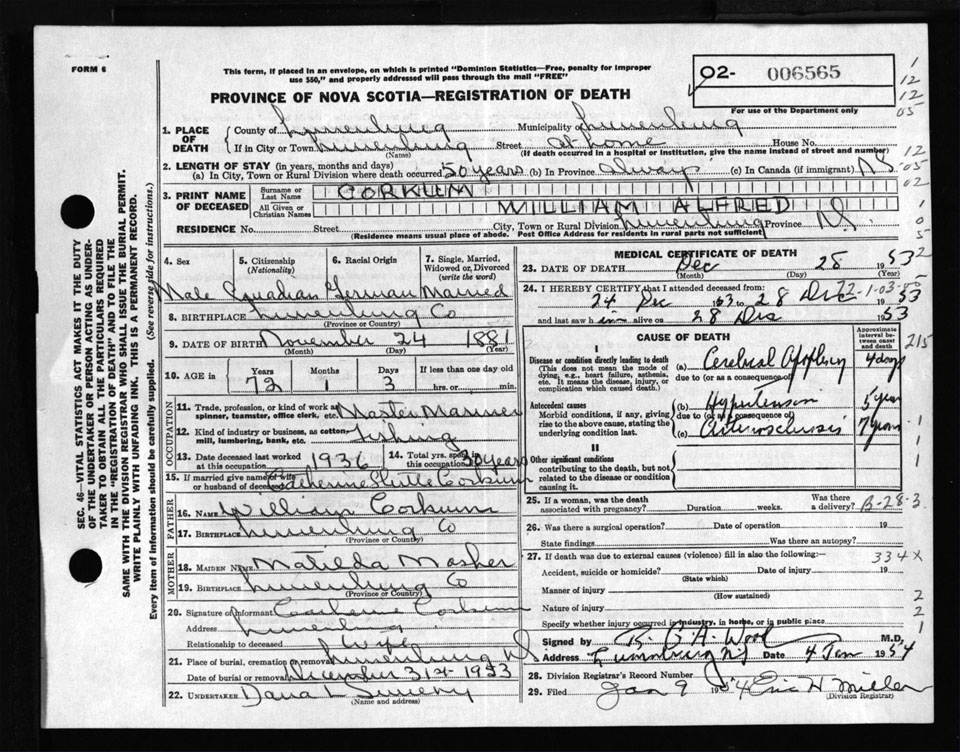 FORM 6
This form, if placed in an envelope, on which is printed "Dominion Statistics—Free, penalty for improper use $50," and properly addressed will pass through the mail "FREE"
02- 006565
For use of the Department only
PROVINCE OF NOVA SCOTIA—REGISTRATION OF DEATH
1
12
12
05
12
05
02
1
0
5
2
1. PLACE OF DEATH
County of Lunenburg Municipality of Lunenburg
If in City or Town Lunenburg Street at home House No.
(Name) (If death occurred in a hospital or institution, give the name instead of street and number)
2. LENGTH OF STAY (in years, months and days)
(a) In City, Town or Rural Division where death occurred 50 years (b) In Province always (c) In Canada (if immigrant) N S
3. PRINT NAME OF DECEASED
Surname or Last Name CORKUM
All Given or Christian Names WILLIAM ALFRED
RESIDENCE No. Street City, Town or Rural Division Lunenburg Province N.S.
(Residence means usual place of abode. Post Office Address for residents in rural parts not sufficient)
4. Sex 5. Citizenship (Nationality) 6. Racial Origin 7. Single, Married, Widowed or, Divorced (write the word)
Male Canadian German Married
8. BIRTHPLACE Lunenburg Co
(Province or Country)
9. DATE OF BIRTH November 24 1881
(Month) (Day) (Year)
10. AGE Years Months Days If less than one day
72 1 3 hrs. or min.
OCCUPATION
11. Trade, profession, or kind of work as spinner, teamster, office clerk, etc. Master Mariner
12. Kind of industry or business, as cotton mill, lumbering, bank, etc. Fishing
13. Date deceased last worked at this occupation 1936 14. Total yrs. spent in this occupation 30 years
15. If married give name of wife or husband of deceased Catherine Corkum
FATHER
16. NAME William Corkum
17. BIRTHPLACE Lunenburg Co
(Province or Country)
MOTHER
18. MAIDEN NAME Matilda Mosher
19. BIRTHPLACE Lunenburg Co
(Province or Country)
20. Signature of informant Catherine Corkum
Address Lunenburg
Relationship to deceased Wife
21. Place of burial, cremation or removal Lunenburg N S
Date of burial or removal December 31st 1953
22. UNDERTAKER Dana L Sweeny
(Name and address)
MEDICAL CERTIFICATE OF DEATH
23. DATE OF DEATH Dec 28 1953
(Month) (Day) (Year)
24. I HEREBY CERTIFY that I attended deceased from:
24 Dec 53 to 28 Dec 1953
and last saw him alive on 28 Dec 1953
CAUSE OF DEATH
Approximate interval between onset and death
215
I
Disease or condition directly leading to death (This does not mean the mode of dying, e.g., heart failure, asthenia, etc. It means the disease, injury, or complication which caused death.)
(a) Cerebral Apoplexy 4 days
due to (or as a consequence of)
Antecedent causes
Morbid conditions, if any, giving rise to the above cause, stating the underlying condition last.
(b) Hypertension 5 years
due to (or as a consequence of)
(c) Arteriosclerosis 7 years
1
1
1
II
Other significant conditions contributing to the death, but not related to the disease or condition causing it.
25. If a woman, was the death associated with pregnancy? Duration weeks. Was there a delivery? B-28-3
26. Was there a surgical operation? Date of operation 19
State findings Was there an autopsy?
27. If death was due to external causes (violence) fill in also the following:— 334 X
Accident, suicide or homicide? Date of injury 19
(State which)
Manner of injury
(How sustained)
2
Nature of injury
2
Specify whether injury occurred in industry, in home, or in public place
1
Signed by B. G. A. Wood M.D,
Address Lunenburg NS Date 4 Jan 1954
28. Division Registrar's Record Number
29. Filed Jan 9 1954 Eric H. Miller
(Division Registrar)
SEC. 46—VITAL STATISTICS ACT MAKES IT THE DUTY OF THE UNDERTAKER OR PERSON ACTING AS UNDERTAKER TO OBTAIN ALL THE PARTICULARS REQUIRED IN THE "REGISTRATION OF DEATH" AND TO FILE THE SAME WITH THE DIVISION REGISTRAR WHO SHALL ISSUE THE BURIAL PERMIT.
WRITE PLAINLY WITH UNFADING INK. THIS IS A PERMANENT RECORD.
Every item of information should be carefully supplied. (See reverse side for instructions.)